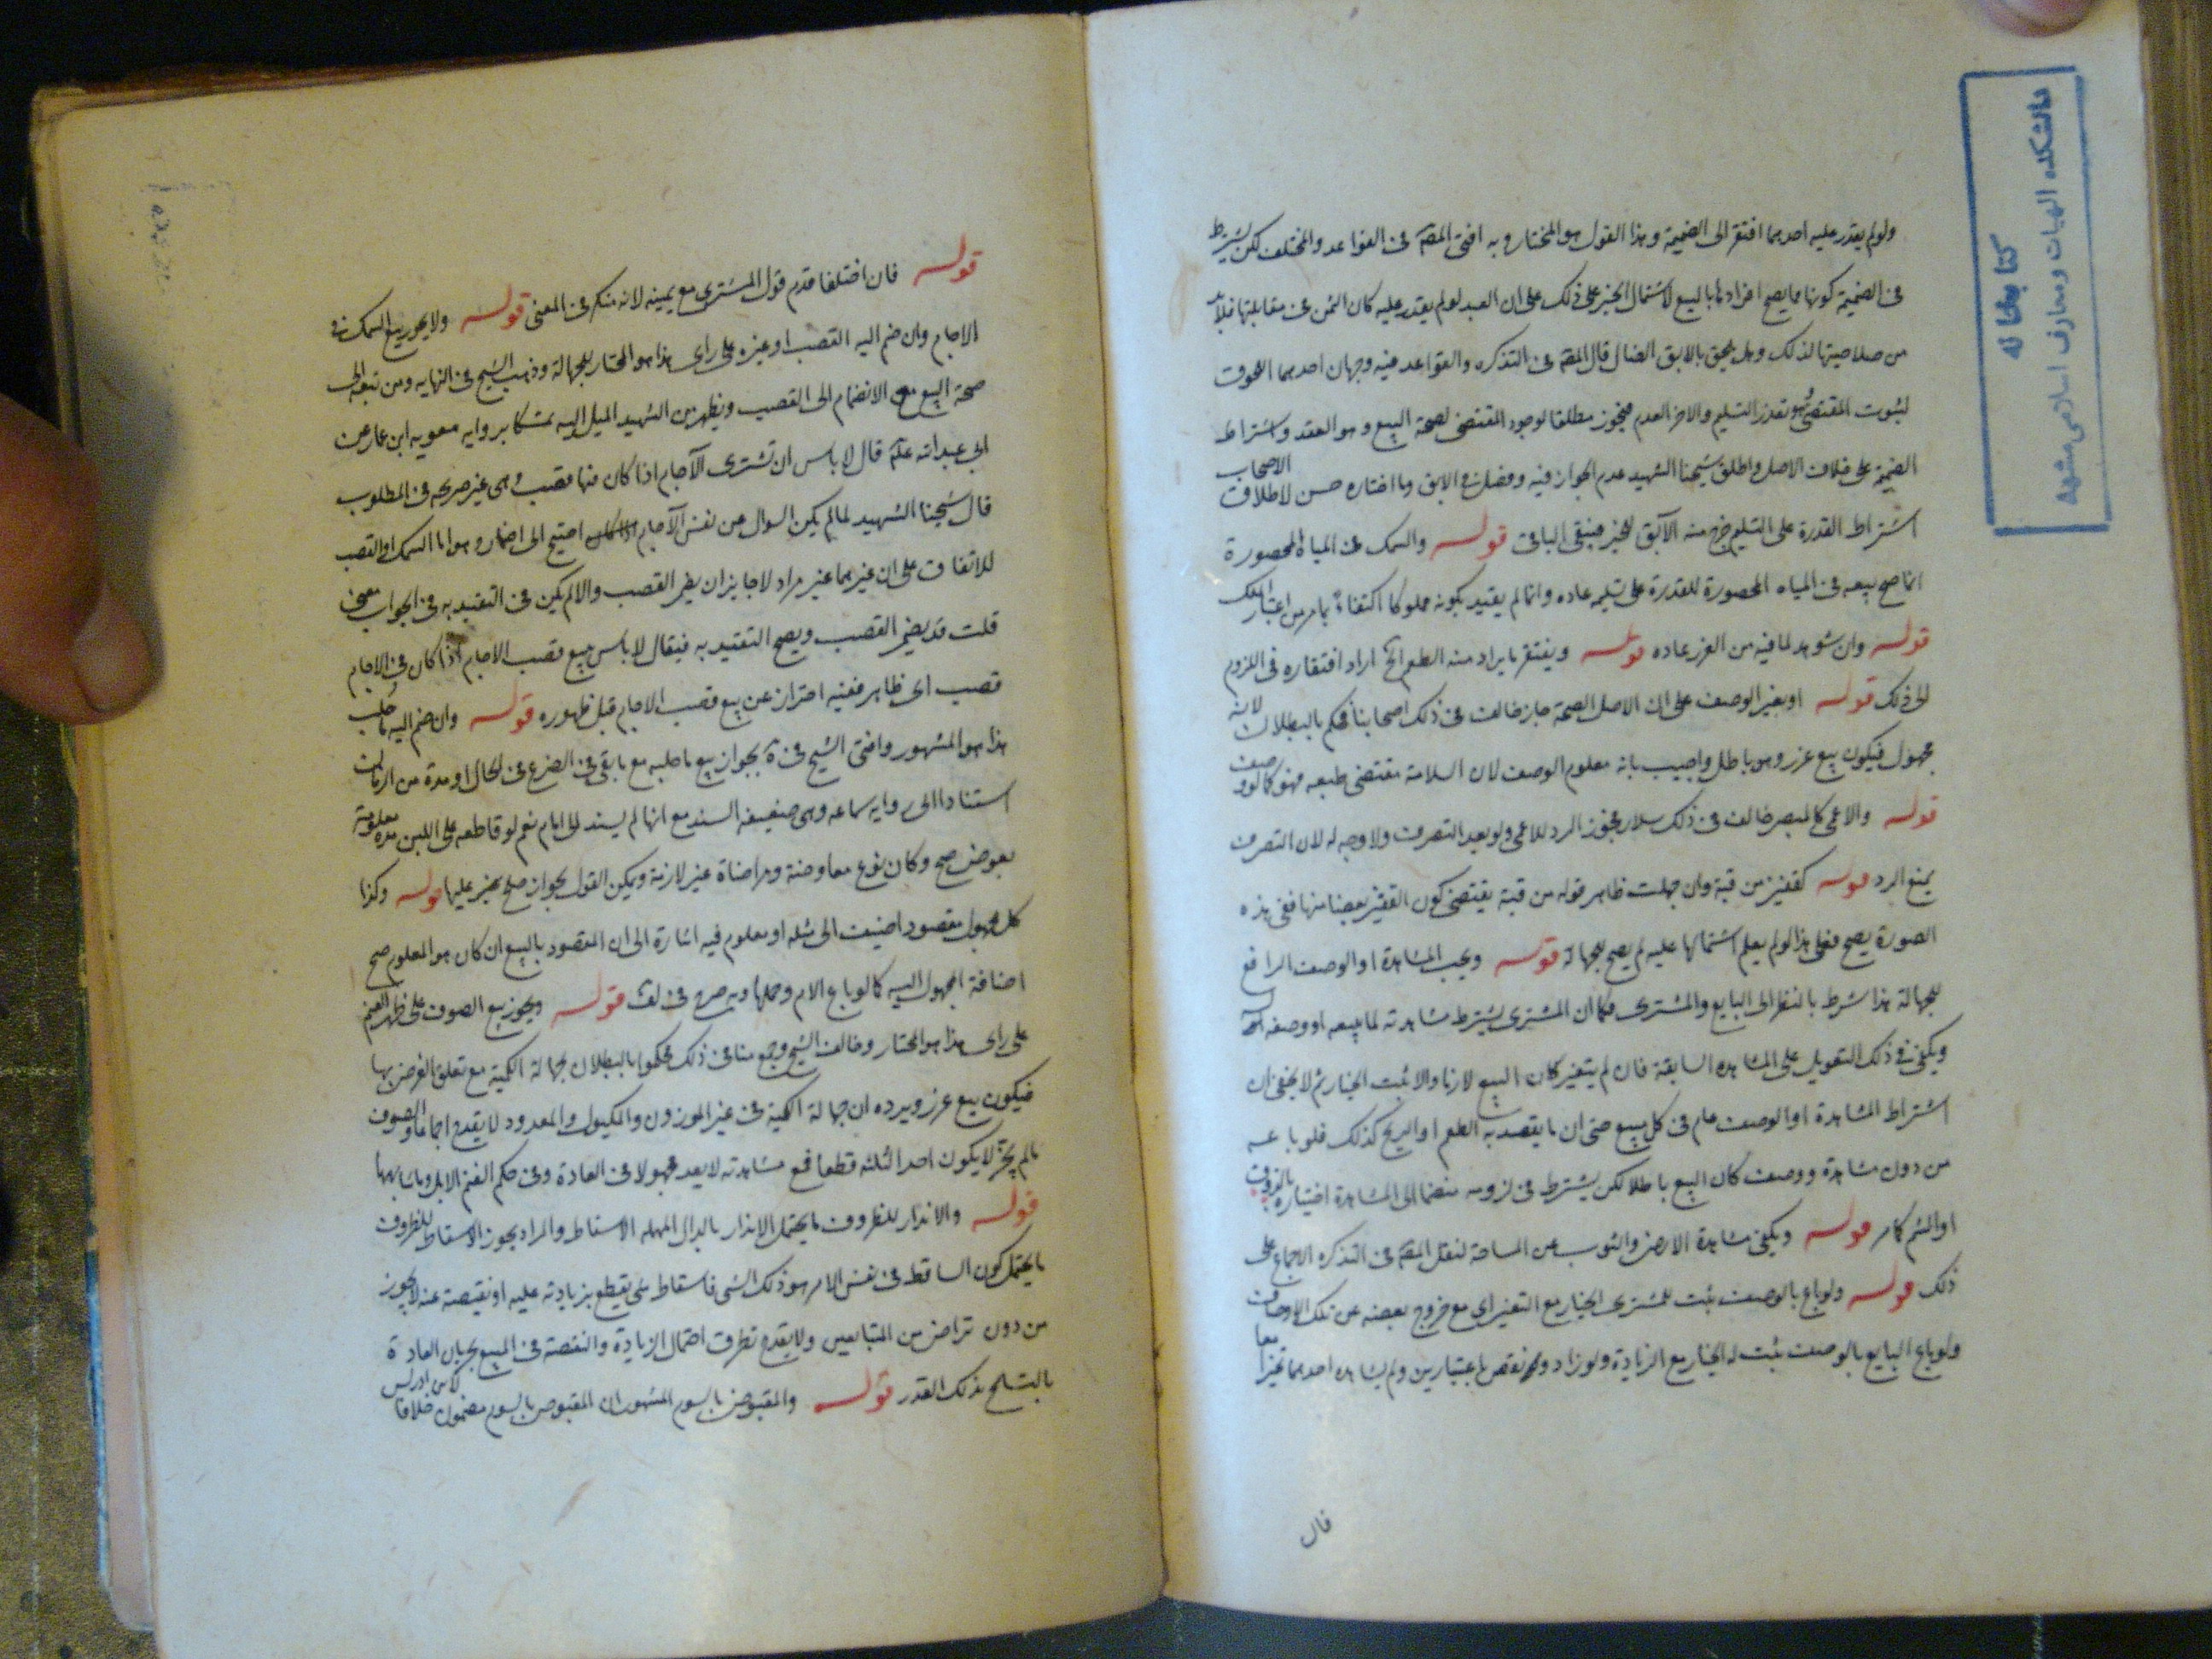 كتابخانه
دانشكده الهيات ومعارف اسلامى مشهد
ولو لم يقدر عليه احدهما افتقر الى الضميمة وهذا القول هو المختار وبه افتى المص في القواعد والمختلف لكن يشترط
في الضميمة كونها مما يصح افرادها بالبيع لاشتمال الخبر على ذلك على ان العبد لو لم يقدر عليه كان الثمن في مقابلتها فلابد
من صلاحيتها لذلك وهل يلحق بالابق الضال قال المص في التذكره والقواعد فيه وجهان احدهما اللحوق
لثبوت المقتضى وهو تعذر التسليم والاخر العدم فيجوز مطلقا لوجود المقتضى لصحة البيع وهو العقد واشتراط
الضميمة على خلاف الاصل واطلق شيخنا الشهيد عدم الجواز فيه وفصل في الابق وما اختاره حسن لاطلاق الاصحاب
اشتراط القدرة على التسليم خرج منه الآبق للخبر فيبقى الباقى قوله والسمك في المياه المحصورة
انما صح بيعه في المياه المحصورة للقدرة على تسليمه عاده وانما لم يقيد بكونه مملوكا اكتفاءً بما مر من اعتبار الملك
قوله وان شوهد لما فيه من الغرر عاده قوله ويفتقر ما يراد منه الطعم الخ اراد افتقاره في اللزوم
الى ذلك قوله او بغير الوصف على ان الاصل الصحة جاز خالف في ذلك اصحابنا فحكم بالبطلان لانه
مجهول فيكون بيع غرر وهو باطل واجيب بانه معلوم الوصف لان السلامة مقتضى طبعه فهو كما لو وصف
قوله والاعمى كالمبصر خالف في ذلك سلار فجوز الرد للاعمى ولو بعد التصرف ولا وجه له لان التصرف
يمنع الرد قوله كقفيز من قبة وان جهلت ظاهر قوله من قبة يقتضى كون القفيز بعضا منها ففى هذه
الصورة يصح فعلى هذا لو لم يعلم اشتمالها عليه لم يصح للجهالة قوله ويجب المشاهدة او الوصف الرافع
للجهالة هذا شرط بالنظر الى البايع والمشترى فكما ان المشترى يشترط مشاهدته لما يبيعه او وصفه له
ويكفى في ذلك التعويل على المشاهده السابقة فان لم يتغير كان البيع لازما والا ثبت الخيار ثم لا يخفى ان
اشتراط المشاهدة او الوصف عام في كل مبيع حتى ان ما يقصد به الطعم او الريح كذلك فلو باعه
من دون مشاهدة ووصف كان البيع باطلا لكن يشترط في لزومه منضما الى المشاهدة اختياره بالذوق
او الشم كما مر قوله ويكفى مشاهدة الارض والثوب عن المساحة لنقل المص في التذكره الاجماع على
ذلك قوله ولو باع بالوصف ثبت للمشترى الخيار مع التغير اى مع خروج بعضه عن تلك الاوصاف
ولو باع البايع بالوصف ثبت له الخيار مع الزيادة ولو زاد ونقص باعتبارين ولم يشاهده احدهما تخيرا معا
قال
قوله فان اختلفا قدم قول المشترى مع يمينه لانه منكر في المعنى قوله ولا يجوز بيع السمك في
الاجام وان ضم اليه القصب او غيره على راى هذا هو المختار للجهالة وذهب الشيخ في النهايه ومن تبعه الى
صحة البيع مع الانضمام الى القصب ويظهر من الشهيد الميل اليه تمسكا بروايه معويه ابن عمار عن
ابى عبدالله علم قال لا باس ان تشترى الآجام اذا كان فيها قصب وهى غير صريحه في المطلوب
قال شيخنا الشهيد لما لم يكن السوال عن نفس الآجام احتيج الى اضمار وهو اما السمك او القصب
للاتفاق على ان غيرهما غير مراد لا جايز ان يضمر القصب والا لم يكن في التقييد به في الجواب معنى
قلت قد يضمر القصب ويصح التقييد به فيقال لا باس ببيع قصب الاجام اذا كان في الاجام
قصب اى ظاهر ففيه احتراز عن بيع قصب الاجام قبل ظهوره قوله وان ضم اليه ما حلب
هذا هو المشهور وافتى الشيخ في ية بجواز بيع ما حلبه مع ما بقى في الضرع في الحال او مدة من الزمان
استنادا الى روايه سماعه وهى ضعيفه السند مع انها لم يسند الى امام نعم لو قاطعه على اللبن مده معلومة
بعوض صح وكان نوع معاوضة ومراضاة غير لازمة ويمكن القول بجواز صلح بخبر عليها قوله وكذا
كل مجهول مقصود اضيف الى مثله او معلوم فيه اشارة الى ان المقصود بالبيع ان كان هو المعلوم صح
اضافة المجهول اليه كما لو باع الام وحملها وبه صرح في لف قوله ويجوز بيع الصوف على ظهر الغنم
على راى هذا هو المختار وخالف الشيخ وجمع منا في ذلك فحكموا بالبطلان لجهالة الكمية مع تعلق الغرض بها
فيكون بيع غرر ويرده ان جهالة الكمية في غير الموزون والمكيول والمعدود لا يقدح اجماعا والصوف
ما لم يجز لا يكون احد الثلثه قطعا فمع مشاهدته لا يعد مجهولا في العادة وفى حكم الغنم الابل وما شابهها
قوله والاندار للظروف ما يحتمل الاندار بالدال المهمله الاسقاط والمراد يجوز الاسقاط للظروف
ما يحتمل كون الساقط في نفس الامر هو ذلك الشى فاسقاط شى يقطع بزيادته عليه او نقيصة عنه لا يجوز
من دون تراض من المتبايعين ولا يقدح تطرق احتمال الزيادة والنقصة في المبيع بجريان العادة
بالتسامح بذلك القدر قوله والمقبوض بالسوم المشهور ان المقبوض بالسوم مضمون خلافا لابن ادريس